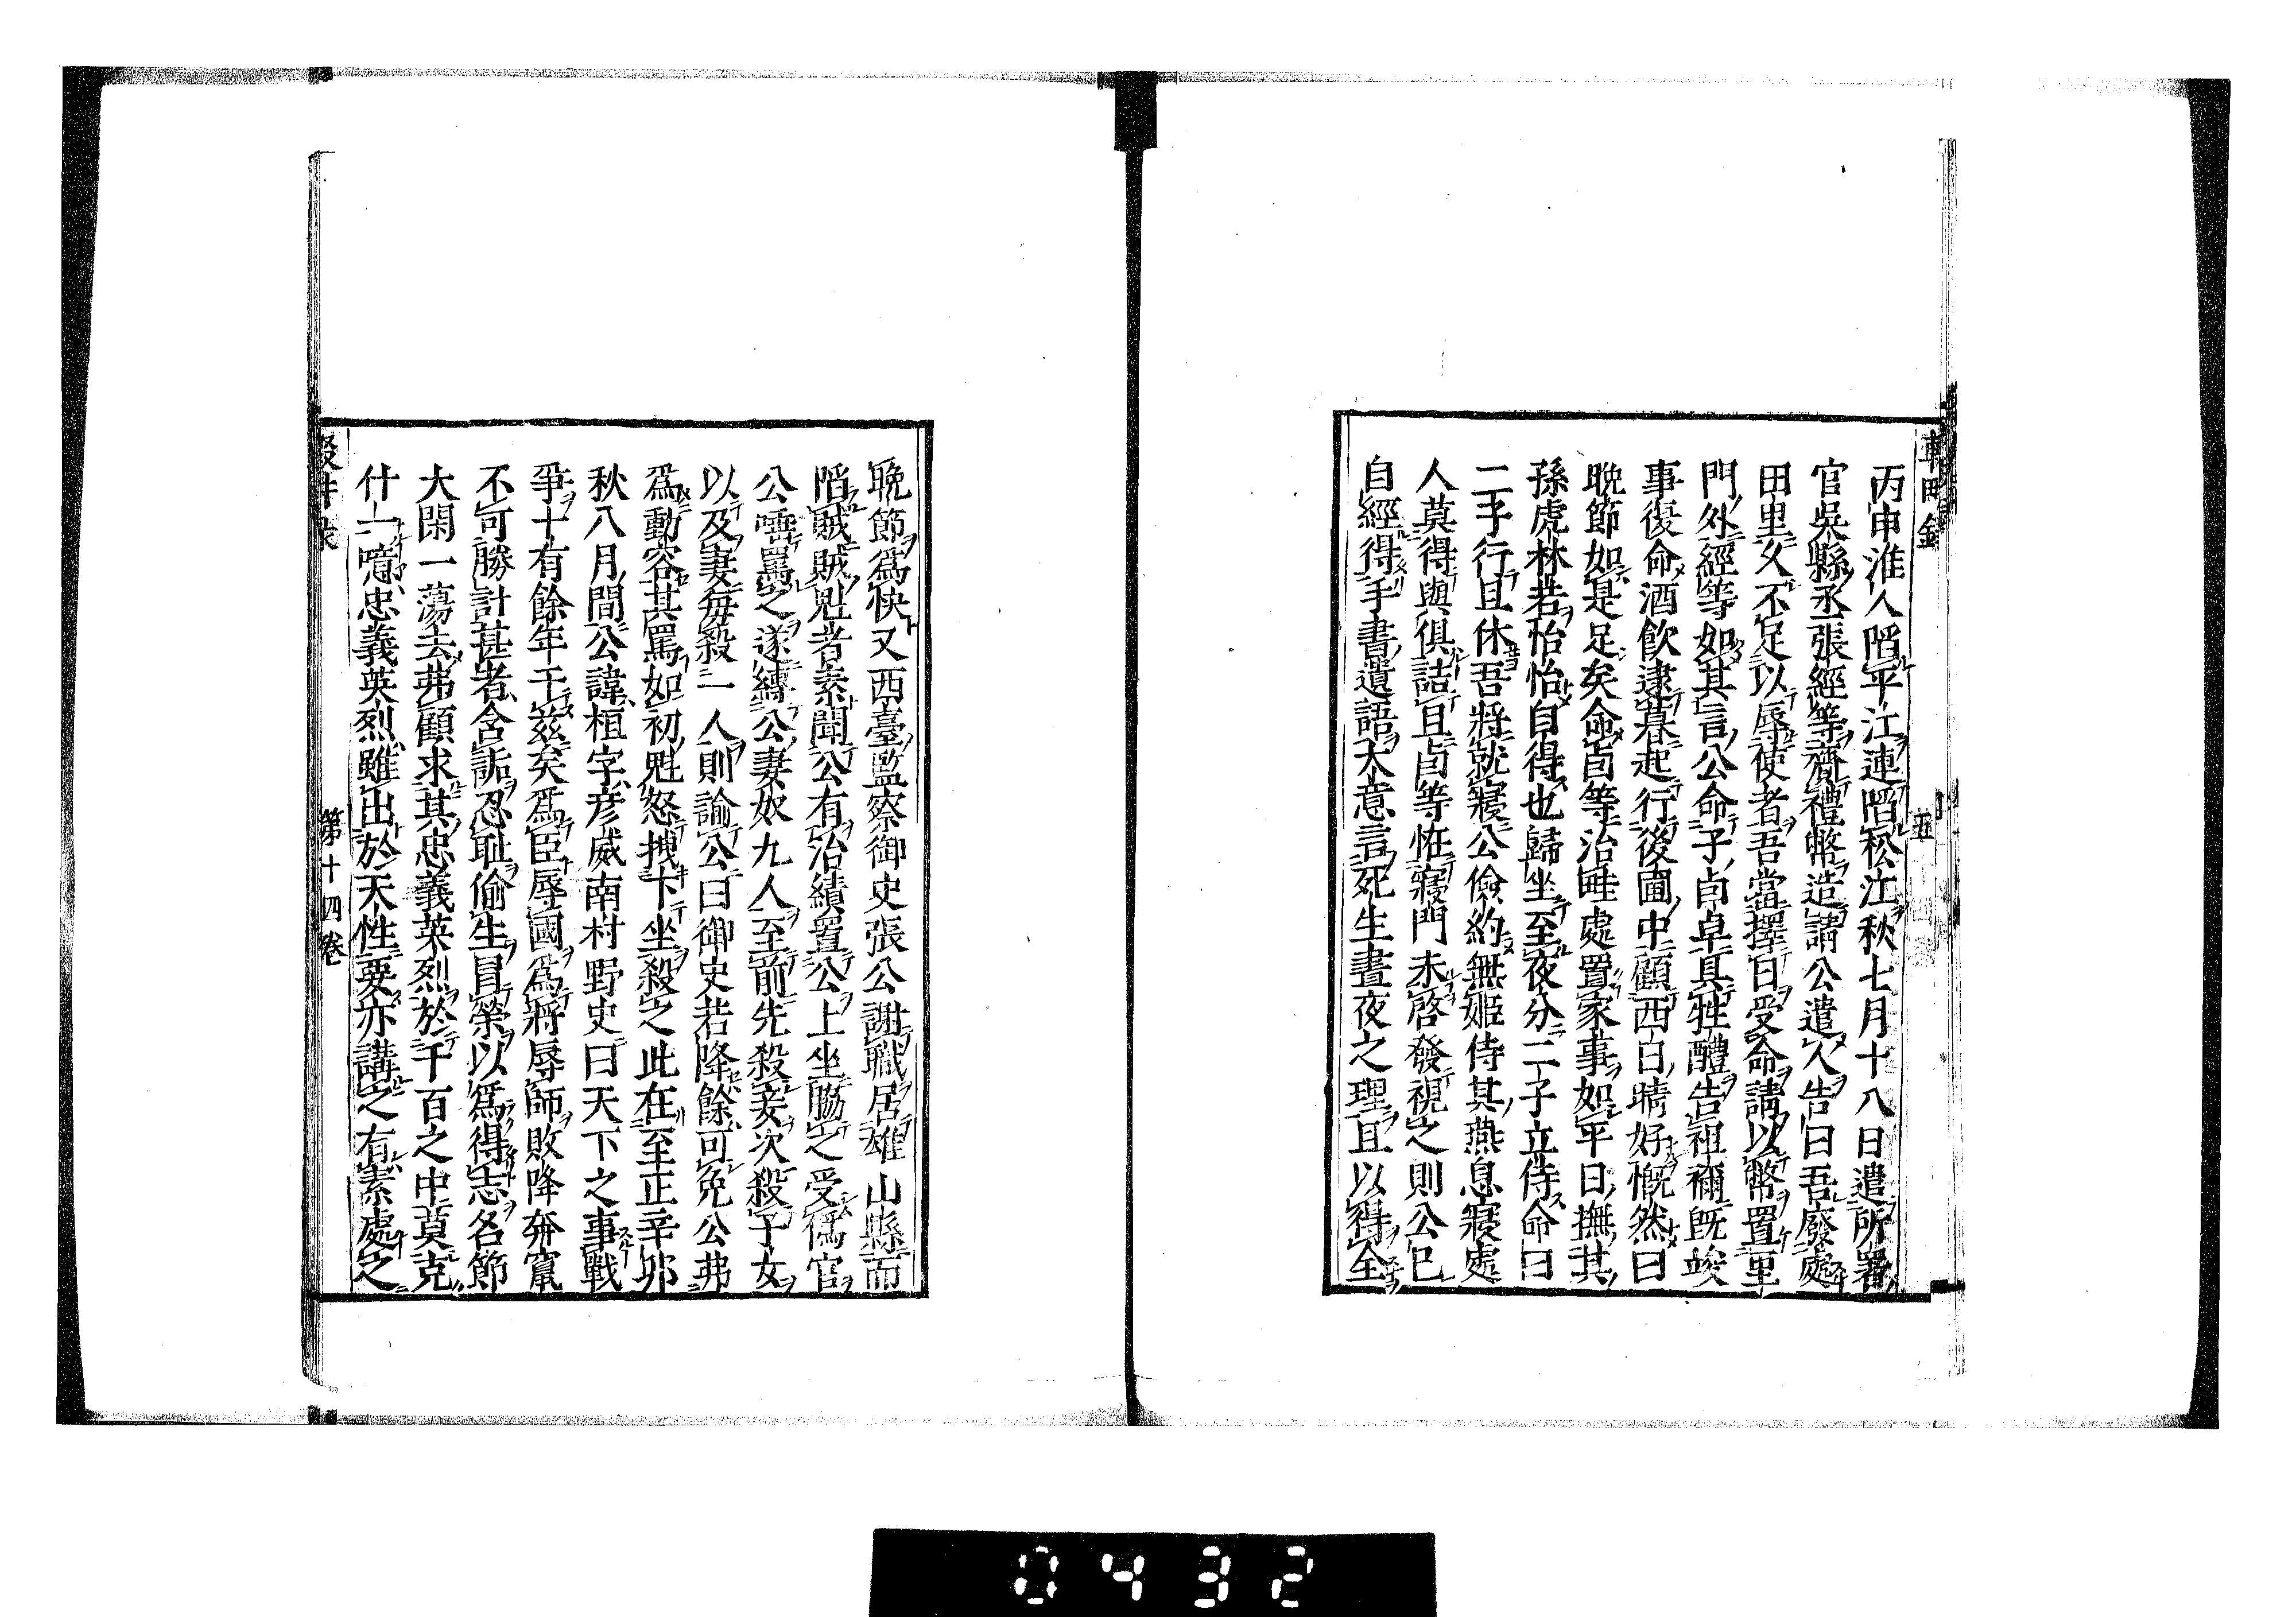 輟耕錄
五
丙申淮人陷平江連陷松江秋七月十八日遣所署
官吳縣丞張經等齎禮幣造請公遣人告曰吾廢處
田里久不足以辱使者吾當擇日受命請以幣置里
門外經等如其言公命子卣卓具牲醴告祖禰旣竣
事復命酒飮逮暮起行後圃中顧西日晴好慨然曰
晩節如是足矣命卣等治畦處置家事如平日撫其
孫虎林若怡怡自得也歸坐至夜分二子立侍命曰
二子行且休吾將就寢公儉約無姬侍其燕息寢處
人莫得與俱詰旦卣等恠寢門未啓發視之則公已
自經得手書遺語大意言死生晝夜之理且以得全
晩節爲快又西臺監察御史張公謝職居雄山縣而
陷賊賊魁者素聞公有治績置公上坐脇之受僞官
公唾罵之遂縛公妻奴九人至前先殺妾次殺子女
以及妻每殺一人則諭公曰御史若降餘可免公弗
爲動容其罵如初魁怒拽下坐殺之此在至正辛卯
秋八月間公諱桓字彥威南村野史曰天下之事戰
爭十有餘年于茲矣爲臣辱國爲將辱師敗降奔竄
不可勝計甚者含詬忍耻偷生冒榮以爲得志名節
大閑一蕩去弗顧求其忠義英烈於千百之中莫克
什一噫忠義英烈雖出於天性要亦講之有素處之
第十四卷